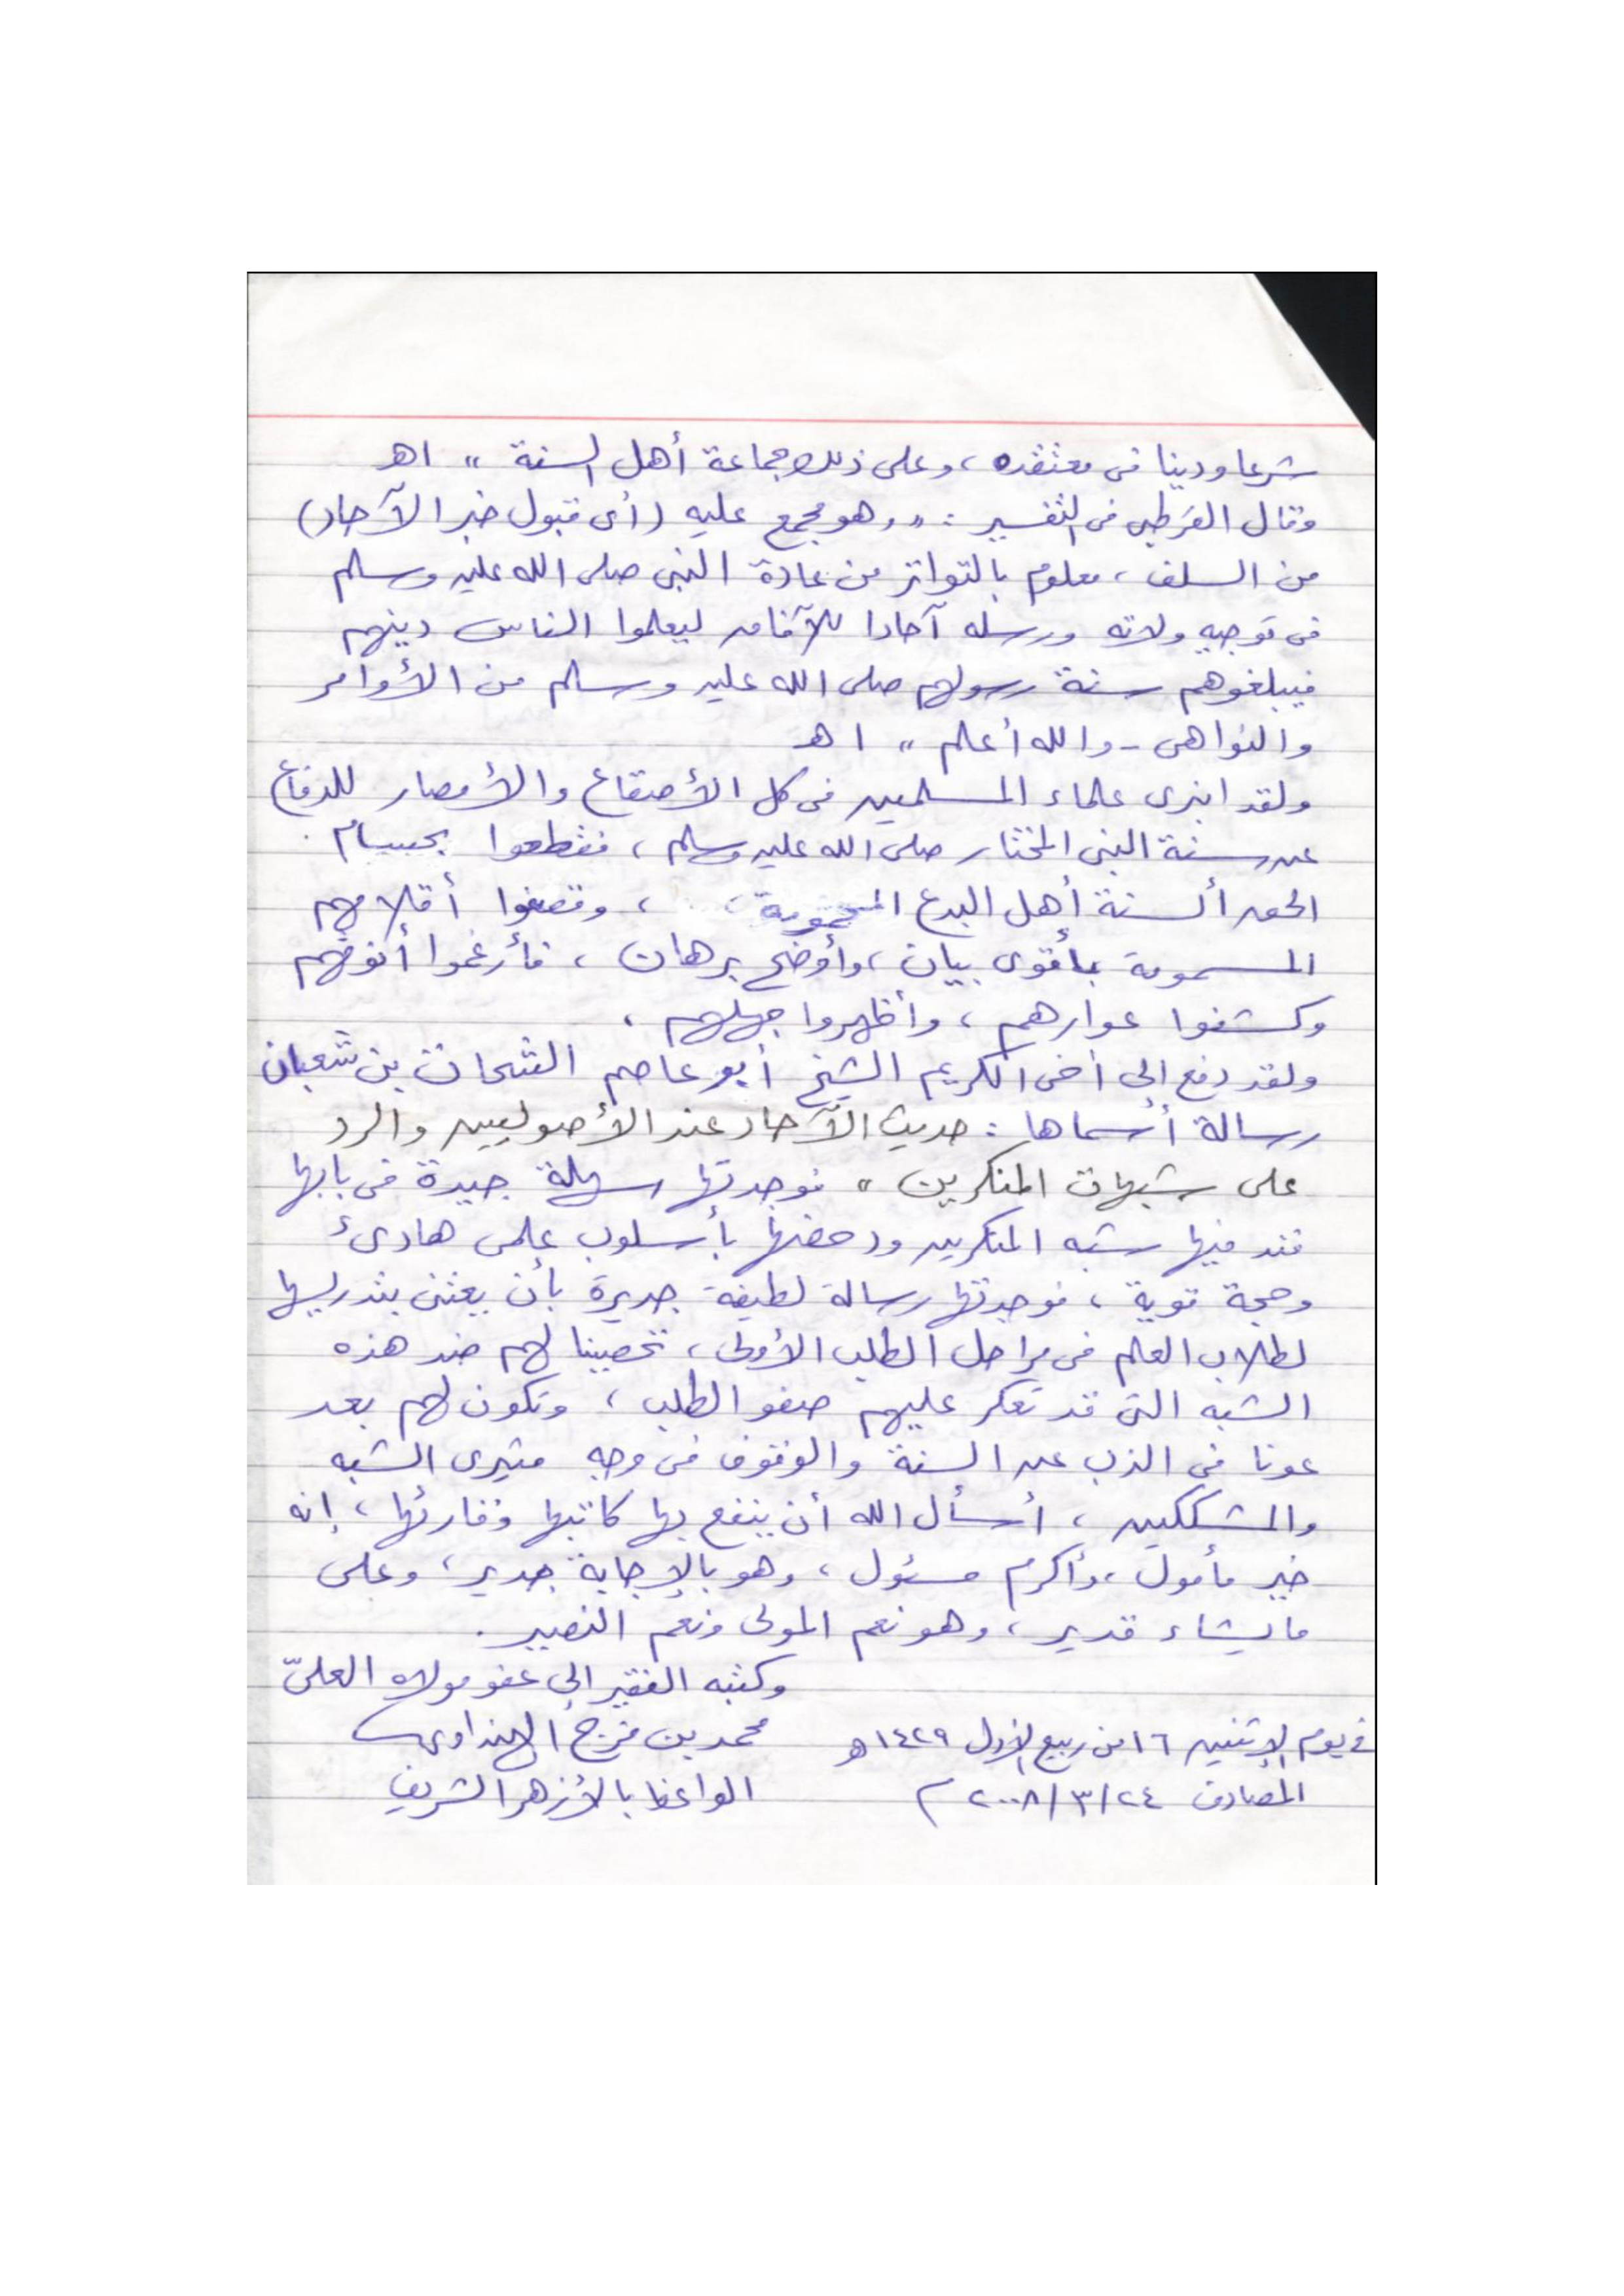 شرعا ودينا فى معتقده، وعلى ذلك جماعة أهل السنة " اهـ
وقال القرطبى فى التفسير : " وهو مجمع عليه (أى قبول خبر الآحاد)
من السلف، معلوم بالتواتر من عادة النبى صلى الله عليه وسلم
فى توجيه ولاته ورسله آحادا للآفاق ليعلموا الناس دينهم
فيبلغوهم سنة رسولهم صلى الله عليه وسلم من الأوامر
والنواهى - والله أعلم " اهـ
ولقد انبرى علماء المسلمين فى كل الأصقاع والأمصار للدفاع
عن سنة النبى المختار صلى الله عليه وسلم، فقطعوا بحسام
الحق ألسنة أهل البدع ، وقصفوا أقلامهم
المسمومة بأقوى بيان، وأوضح برهان، فأرغموا أنوفهم
وكشفوا عوارهم، وأظهروا جهلهم.
ولقد دفع إلى أخى الكريم الشيخ أبو عاصم الشحات بن شعبان
رسالة أسماها : حديث الآحاد عند الأصوليين والرد
على شبهات المنكرين " فوجدتها سهلة جيدة فى بابها
فند فيها شبه المنكرين ودحضها بأسلوب علمى هادئ
وحجة قوية، فوجدتها رسالة لطيفة جديرة بأن يعتنى بتدريسها
لطلاب العلم فى مراحل الطلب الأولى، تحصينا لهم ضد هذه
الشبه التى قد تعكر عليهم صفو الطلب، وتكون لهم بعد
عونا فى الذب عن السنة والوقوف فى وجه مثيرى الشبه
والمشككين، أسأل الله أن ينفع بها كاتبها وقارئها، إنه
خير مأمول، وأكرم مسئول، وهو بالإجابة جدير، وعلى
ما يشاء قدير، وهو نعم المولى ونعم النصير.
وكتبه الفقير إلى عفو مولاه العلىّ
محمد بن فرج الهنداوى
فى يوم الإثنين ١٦ من ربيع الأول ١٤٢٩ هـ
الواعظ بالأزهر الشريف
المصادف ٢٤/٣/٢٠٠٨ م